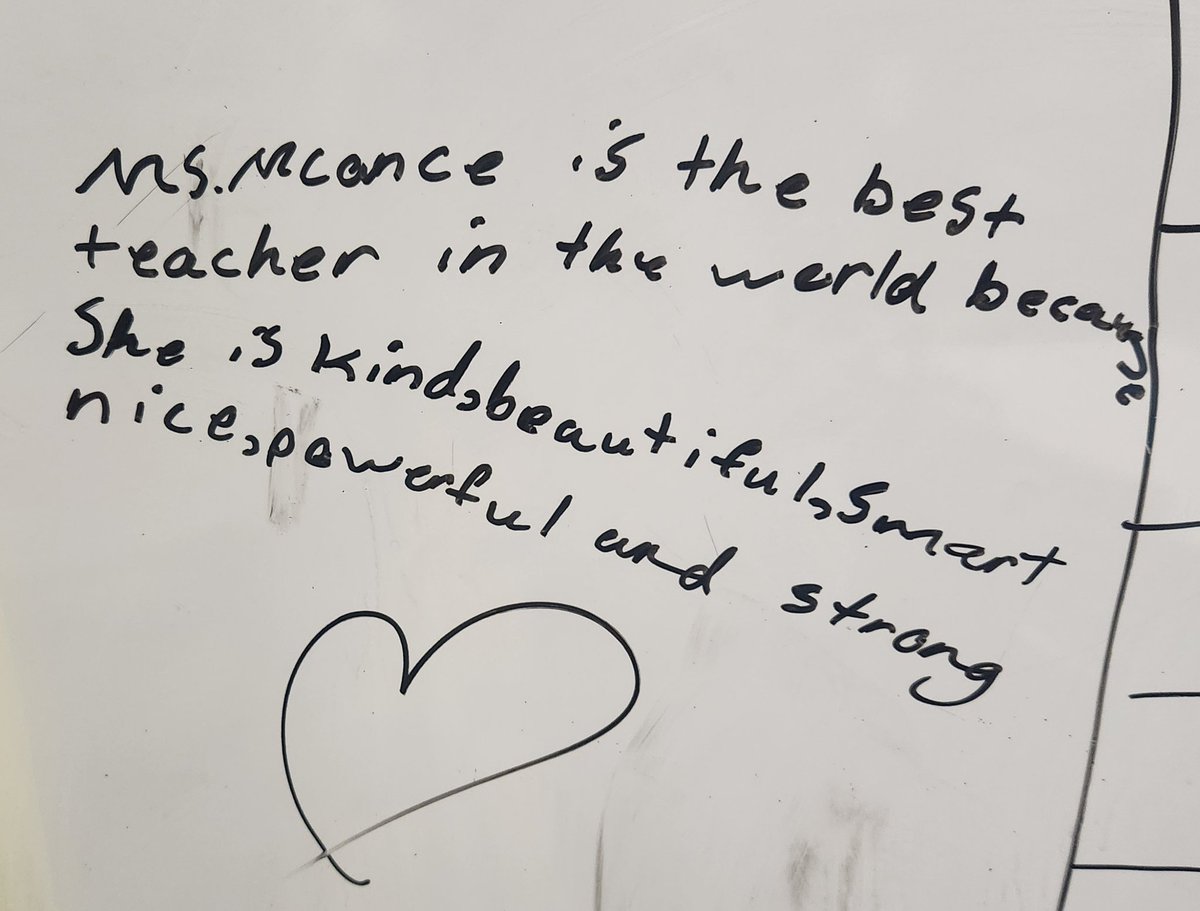 Ms. Mcance is the best
teacher in the world because
She is kind,beautiful,Smart
nice,powerful and strong